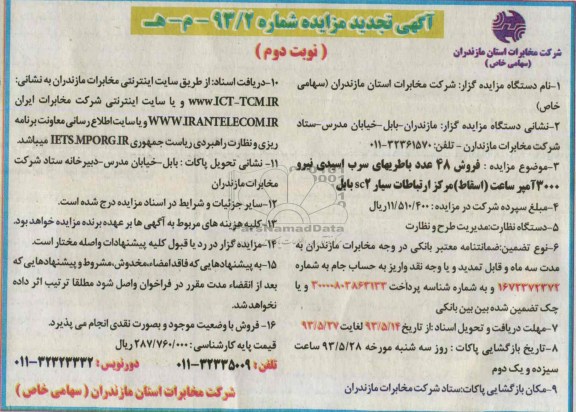 آگهی تجدید مزایده شماره ۹۳/۲ - م - هـ
( نوبت دوم )
شرکت مخابرات استان مازندران
(سهامی خاص)
۱-نام دستگاه مزایده گزار: شرکت مخابرات استان مازندران (سهامی
خاص)
۲-نشانی دستگاه مزایده گزار: مازندران-بابل-خیابان مدرس-ستاد
شرکت مخابرات مازندران - تلفن: ۳۲۳۶۱۵۷۰-۰۱۱
۳-موضوع مزایده : فروش ۴۸ عدد باطریهای سرب اسیدی نیرو
۳۰۰۰آمپر ساعت (اسقاط)مرکز ارتباطات سیار sc۲ بابل
۴-مبلغ سپرده شرکت در مزایده : ۱۱/۵۱۰/۴۰۰ریال
۵-دستگاه نظارت:مدیریت طرح و نظارت
۶-نوع تضمین:ضمانتنامه معتبر بانکی در وجه مخابرات مازندران به
مدت سه ماه و قابل تمدید و یا وجه نقد واریز به حساب جام به شماره
۱۶۷۲۳۷۲۳۷۲ و به شماره شناسه پرداخت ۳۰۰۰۰۸۰۳۸۶۳۱۳۳ و یا
چک تضمین شده بین بین بانکی
۷-مهلت دریافت و تحویل اسناد:از تاریخ ۹۳/۵/۱۴ لغایت ۹۳/۵/۲۷
۸-تاریخ بازگشایی پاکات : روز سه شنبه مورخه ۹۳/۵/۲۸ ساعت
سیزده و یک دوم
۹-مکان بازگشایی پاکات:ستاد شرکت مخابرات مازندران
۱۰-دریافت اسناد: از طریق سایت اینترنتی مخابرات مازندران به نشانی:
www.ICT-TCM.IR و یا سایت اینترنتی شرکت مخابرات ایران
WWW.IRANTELECOM.IR و یا سایت اطلاع رسانی معاونت برنامه
ریزی و نظارت راهبردی ریاست جمهوری IETS.MPORG.IR میباشد.
۱۱- نشانی تحویل پاکات : بابل-خیابان مدرس-دبیرخانه ستاد شرکت
مخابرات مازندران
۱۲-سایر جزئیات و شرایط در اسناد مزایده درج شده است.
۱۳-کلیه هزینه های مربوط به آگهی ها بر عهده برنده مزایده خواهد بود.
۱۴-مزایده گزار در رد یا قبول کلیه پیشنهادات واصله مختار است.
۱۵-به پیشنهادهایی که فاقد امضاء،مخدوش،مشروط و پیشنهادهایی که
بعد از انقضاء مدت مقرر در فراخوان واصل شود مطلقا ترتیب اثر داده
نخواهد شد.
۱۶- فروش با وضعیت موجود و بصورت نقدی انجام می پذیرد.
قیمت پایه کارشناسی : ۲۸۷/۷۶۰/۰۰۰ ریال
تلفن : ۳۲۳۳۵۰۰۹-۰۱۱ دورنویس : ۳۲۳۲۳۳۳۲-۰۱۱
شرکت مخابرات استان مازندران ( سهامی خاص )